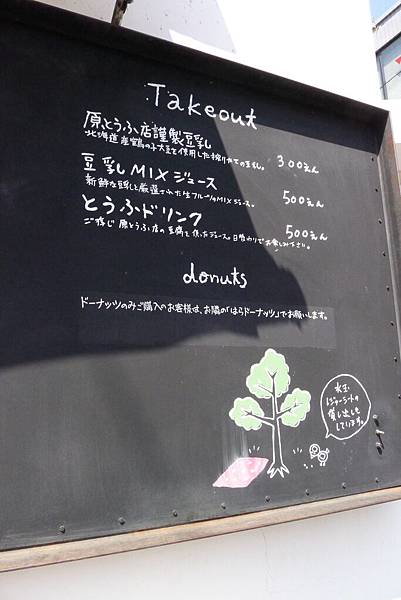 Takeout
原とうふ店謹製豆乳
北海道産鶴の子大豆を使用した搾りたての豆乳。 300えん
豆乳MIXジュース
新鮮な豆乳と厳選された生フルーツのMIXジュース。 500えん
とうふドリンク
ご存じ 原とうふ店の豆腐を使ったジュース。日替わりでお楽しみ下さい。 500えん
donuts
ドーナッツのみご購入のお客様は、お隣の「はらドーナッツ」でお願いします。
水玉
レジャーシートの
貸し出しを
しています。